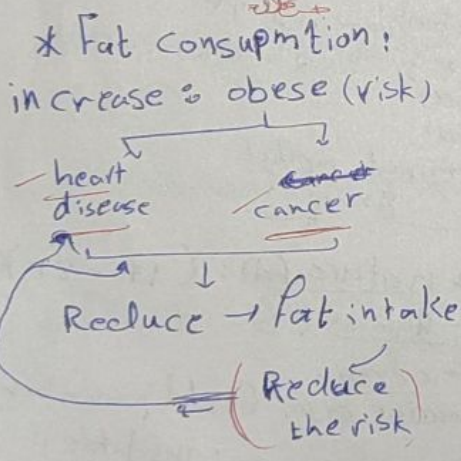 * Fat consupmtion:
increase : obese (risk)
heart
disease
cancer
Reduce → fat intake
(Reduce
the risk)